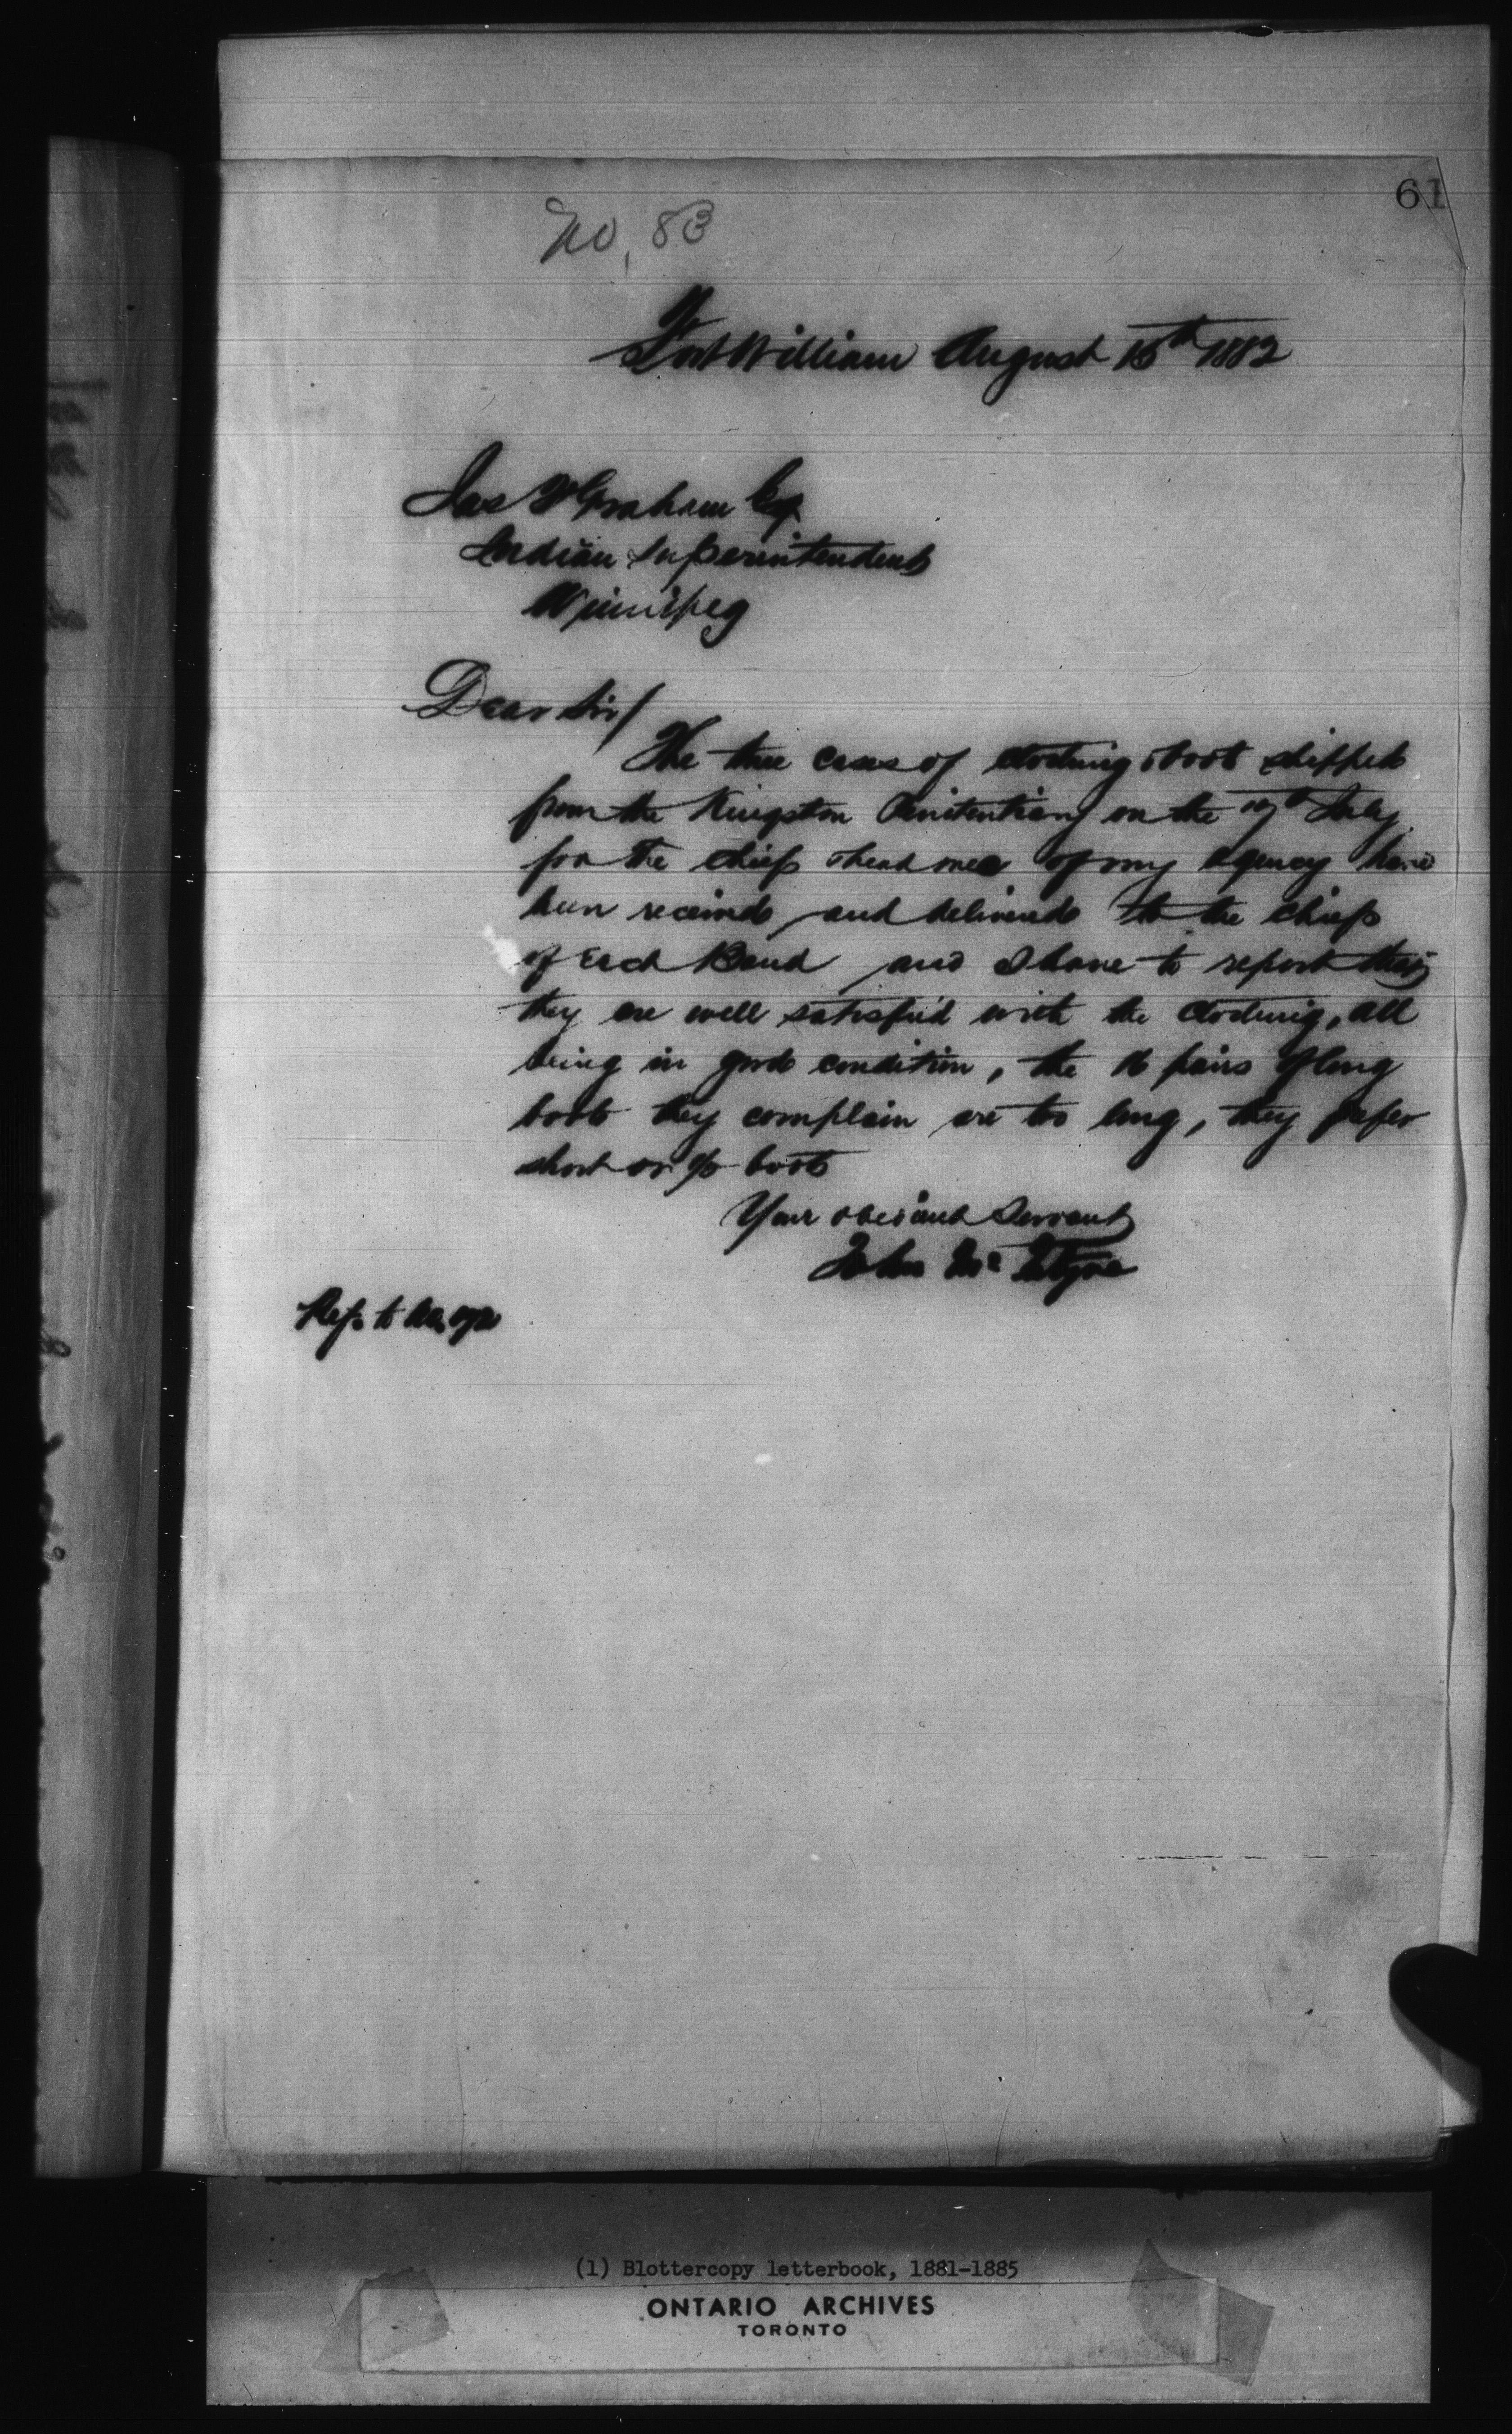 61
No, 83
Fort William August 15th 1882
Jas F Graham Esq
Indian Superintendent
Winnipeg
Dear Sir/
The three cases of clothing & boots shipped
from the Kingston Penitentiary on the July
for the chiefs & head men of my agency have
been received and delivered to the chiefs
of Each Band and I have to report that
they are well satisfied with the clothing, all
being in good condition, the 16 pairs of long
boots they complain are too long, they prefer
short or boots
Your obedient Servant
John McIntyre
Ref. to No.
(1) Blottercopy letterbook, 1881-1885
ONTARIO ARCHIVES
TORONTO